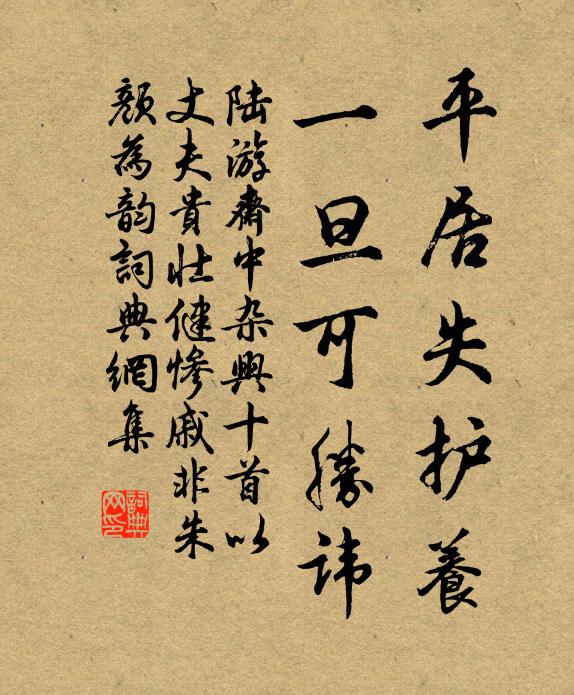 平居失护養
一旦可勝諱
陆游齋中杂興十首以
丈夫貴壮健惨戚非朱
顔為韵詞典網集
詞典网印